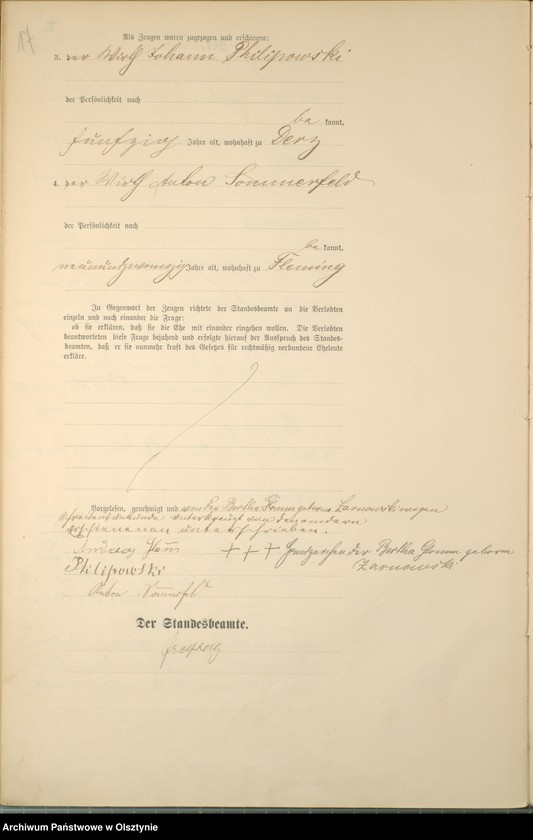 17
Als Zeugen waren zugezogen und erschienen:
3. der Wirth Johann Philipowski
der Persönlichkeit nach
be kannt,
fünfzig Jahre alt, wohnhaft zu Derz
4. der Wirth Anton Sommerfeld
der Persönlichkeit nach
be kannt,
neunundzwanzig Jahre alt, wohnhaft zu Fleming
In Gegenwart der Zeugen richtete der Standesbeamte an die Verlobten
einzeln und nach einander die Frage:
ob sie erklären, daß sie die Ehe mit einander eingehen wollen. Die Verlobten
beantworteten diese Frage bejahend und erfolgte hierauf der Ausspruch des Standes-
beamten, daß er sie nunmehr kraft des Gesetzes für rechtmäßig verbundene Eheleute
erkläre.
Vorgelesen, genehmigt und von der Bertha geborne Zarnowski wegen
Schreibensunkunde unterkreuzt von den andern
Erschienenen unterschrieben.
Andreas
+++ Handzeichen der Bertha geborne
Philipowski
Zarnowski
Anton Sommerfeld
Der Standesbeamte.
Archiwum Państwowe w Olsztynie